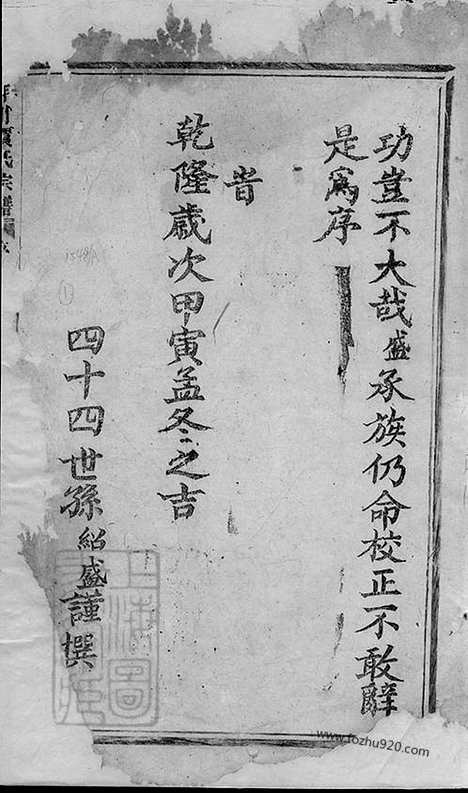 功豈不大哉盛承族仍命校正不敢辭
是為序
旹
乾隆歲次甲寅孟冬之吉
四十四世孫紹盛謹撰
氏宗譜
1548/A
1
上海圖
www.fozhu920.com